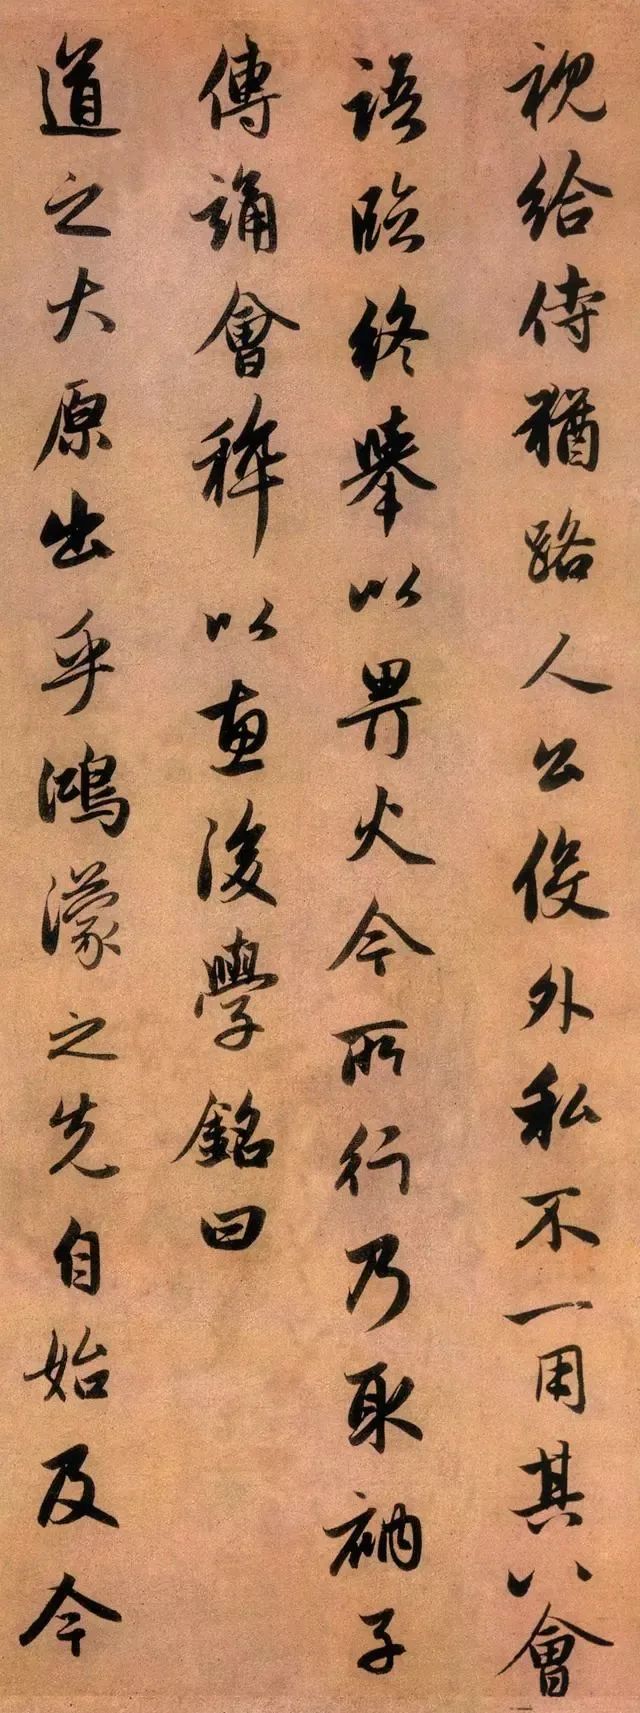 視給侍猶路人公役外私不一用其八會
語臨終舉以畀火今所行乃取衲子
傳誦會稡以惠後學銘曰
道之大原出乎鴻濛之先自始及今